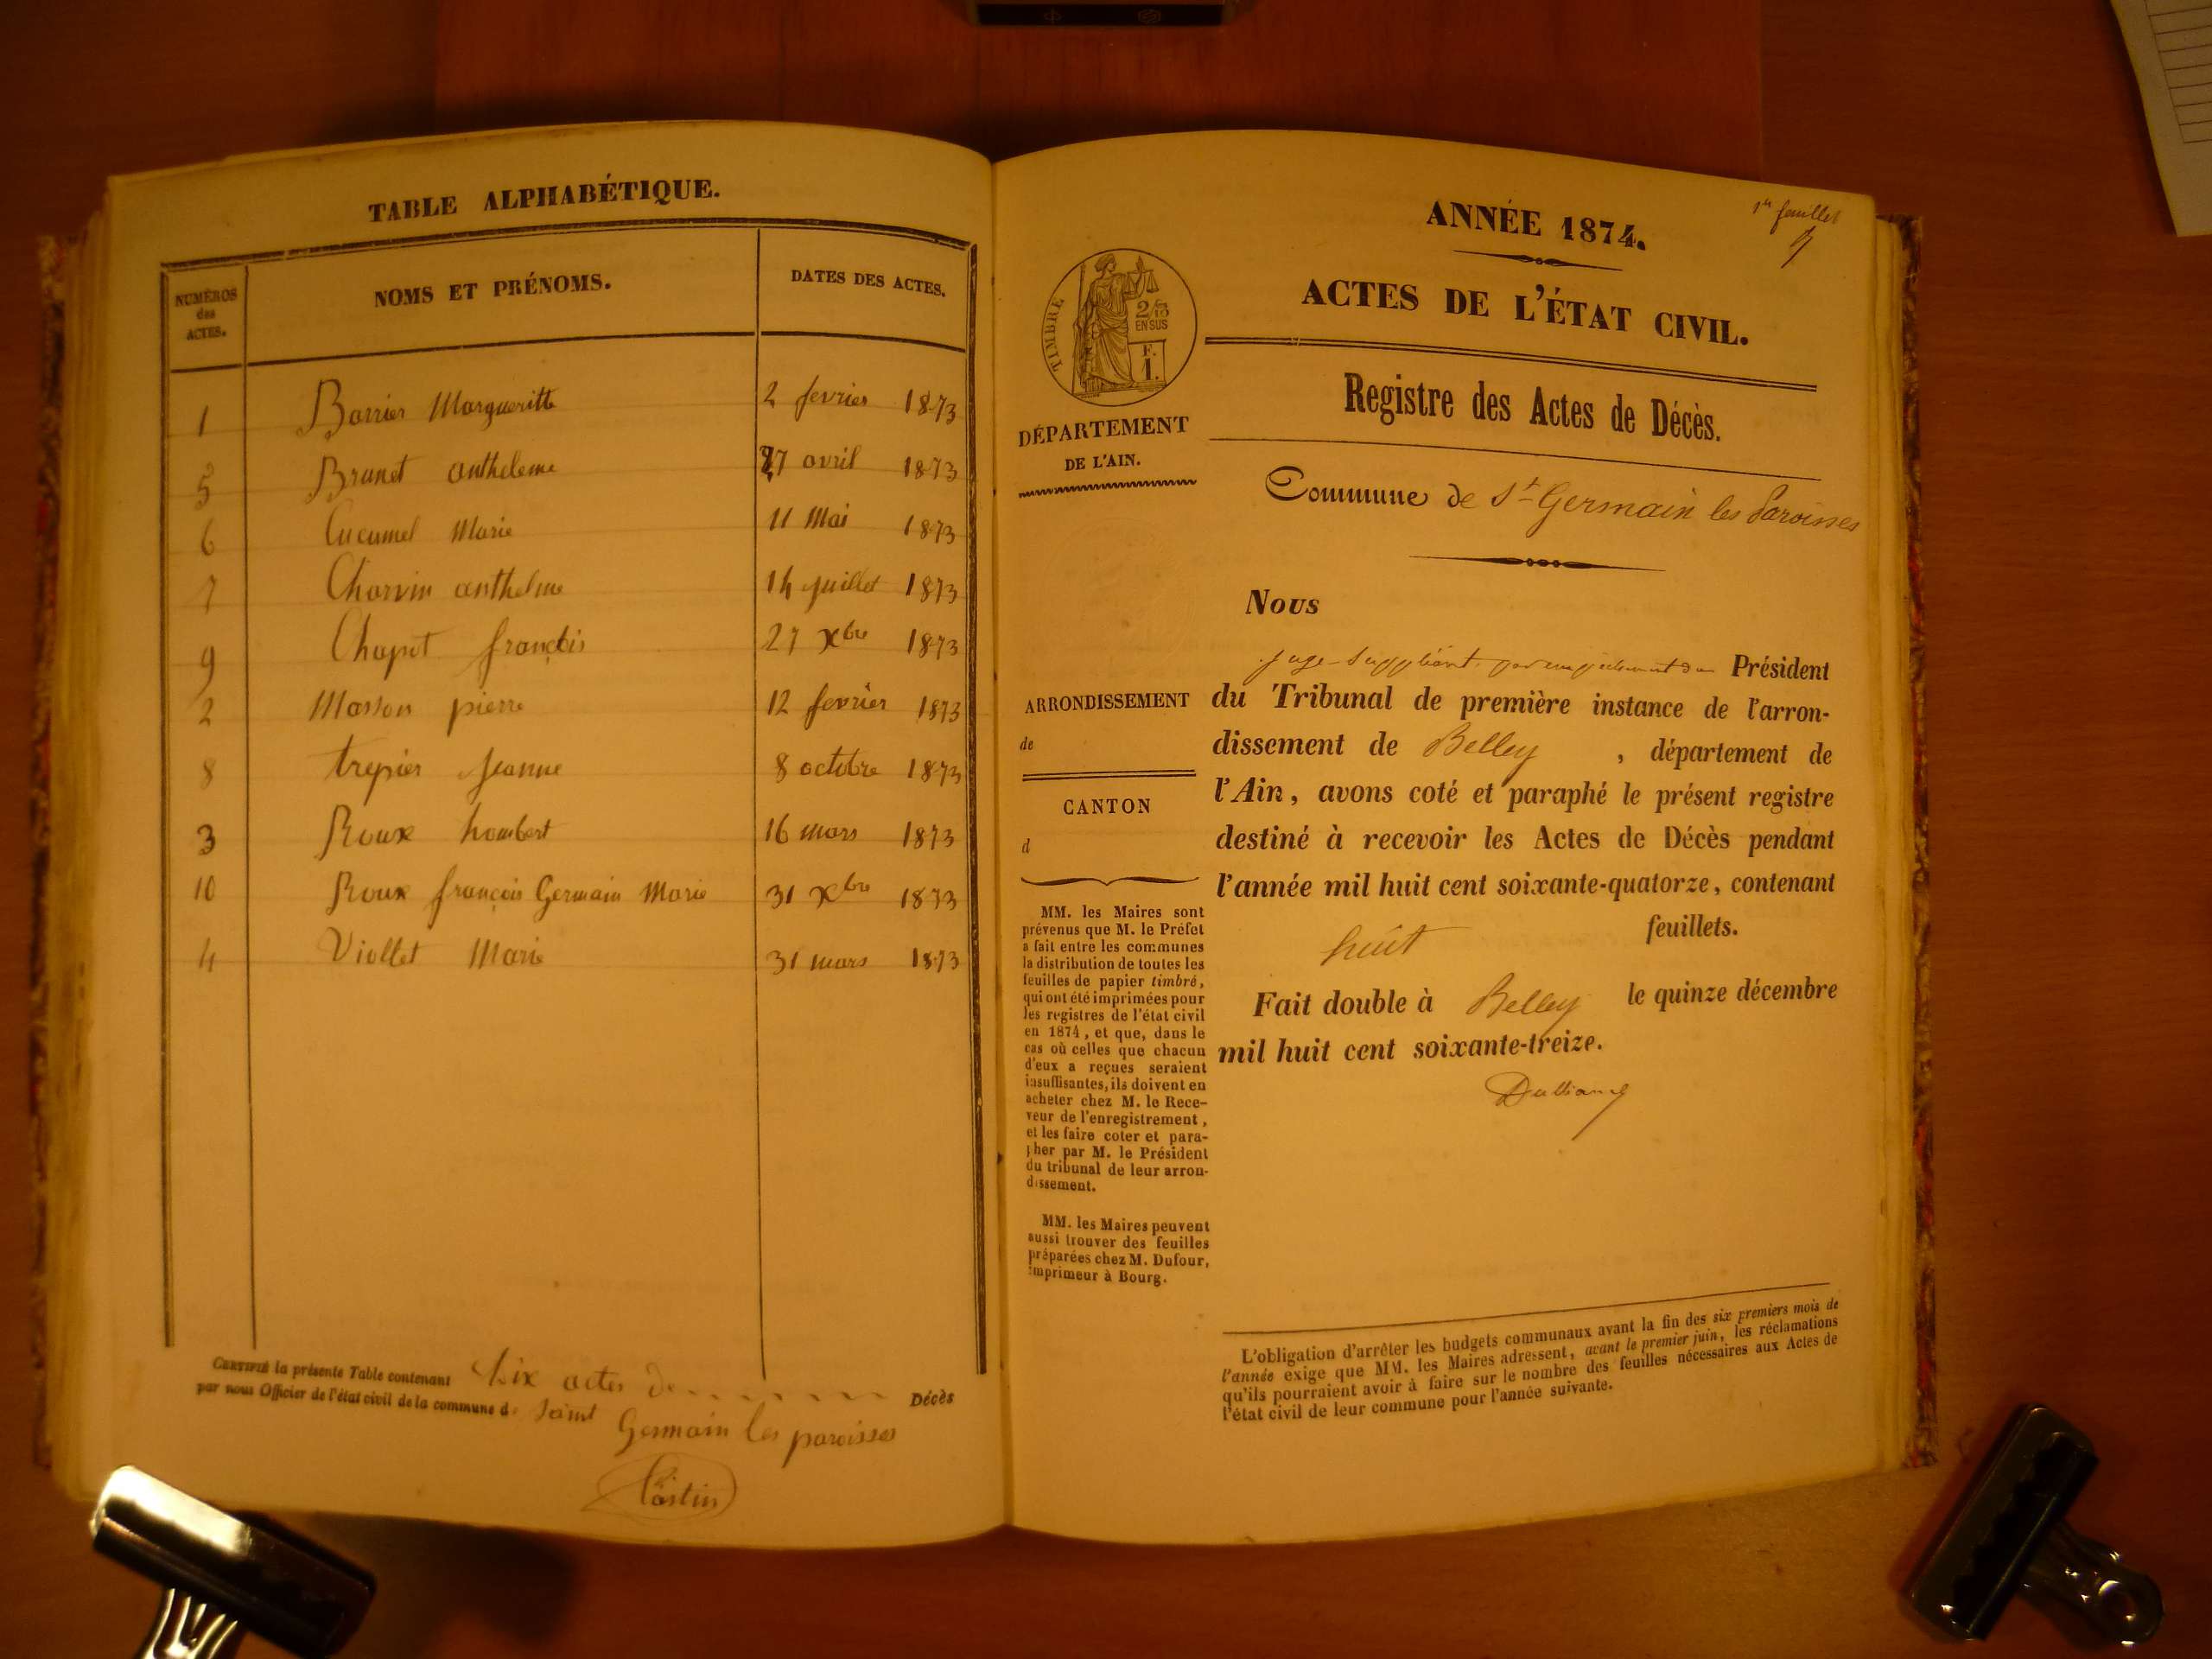 TABLE ALPHABÉTIQUE.
NUMÉROS des ACTES. NOMS ET PRÉNOMS. DATES DES ACTES.
1 Barrier Margueritte 2 fevrier 1873
5 Brunet antheleme 27 avril 1873
6 Cucumel Marie 11 Mai 1873
7 Charvin anthelme 14 juillet 1873
9 Chapot françois 27 Xbre 1873
2 Masson pierre 12 fevrier 1873
8 trepier jeanne 8 octobre 1873
3 Roux hombert 16 mars 1873
10 Roux françois Germain Marie 31 Xbre 1873
4 Viollet Marie 31 mars 1873
CERTIFIÉ la présente Table contenant dix actes de Décès
par nous Officier de l'état civil de la commune de Saint
Germain les paroisses
1er feuillet
ANNÉE 1874.
ACTES DE L'ÉTAT CIVIL.
TIMBRE
2/10
EN SUS
F.
1.
DÉPARTEMENT
DE L'AIN.
Registre des Actes de Décès.
Commune de St Germain les Paroisses
ARRONDISSEMENT
de
CANTON
d
MM. les Maires sont
prévenus que M. le Préfet
a fait entre les communes
la distribution de toutes les
feuilles de papier timbré,
qui ont été imprimées pour
les registres de l'état civil
en 1874, et que, dans le
cas où celles que chacun
d'eux a reçues seraient
insuffisantes, ils doivent en
acheter chez M. le Rece-
veur de l'enregistrement,
et les faire coter et para-
pher par M. le Président
du tribunal de leur arron-
dissement.
MM. les Maires peuvent
aussi trouver des feuilles
préparées chez M. Dufour,
imprimeur à Bourg.
Nous
juge-suppléant par empêchement du Président
du Tribunal de première instance de l'arron-
dissement de Belley , département de
l'Ain, avons coté et paraphé le présent registre
destiné à recevoir les Actes de Décès pendant
l'année mil huit cent soixante-quatorze, contenant
huit feuillets.
Fait double à Belley le quinze décembre
mil huit cent soixante-treize.
L'obligation d'arrêter les budgets communaux avant la fin des six premiers mois de
l'année exige que MM. les Maires adressent, avant le premier juin, les réclamations
qu'ils pourraient avoir à faire sur le nombre des feuilles nécessaires aux Actes de
l'état civil de leur commune pour l'année suivante.